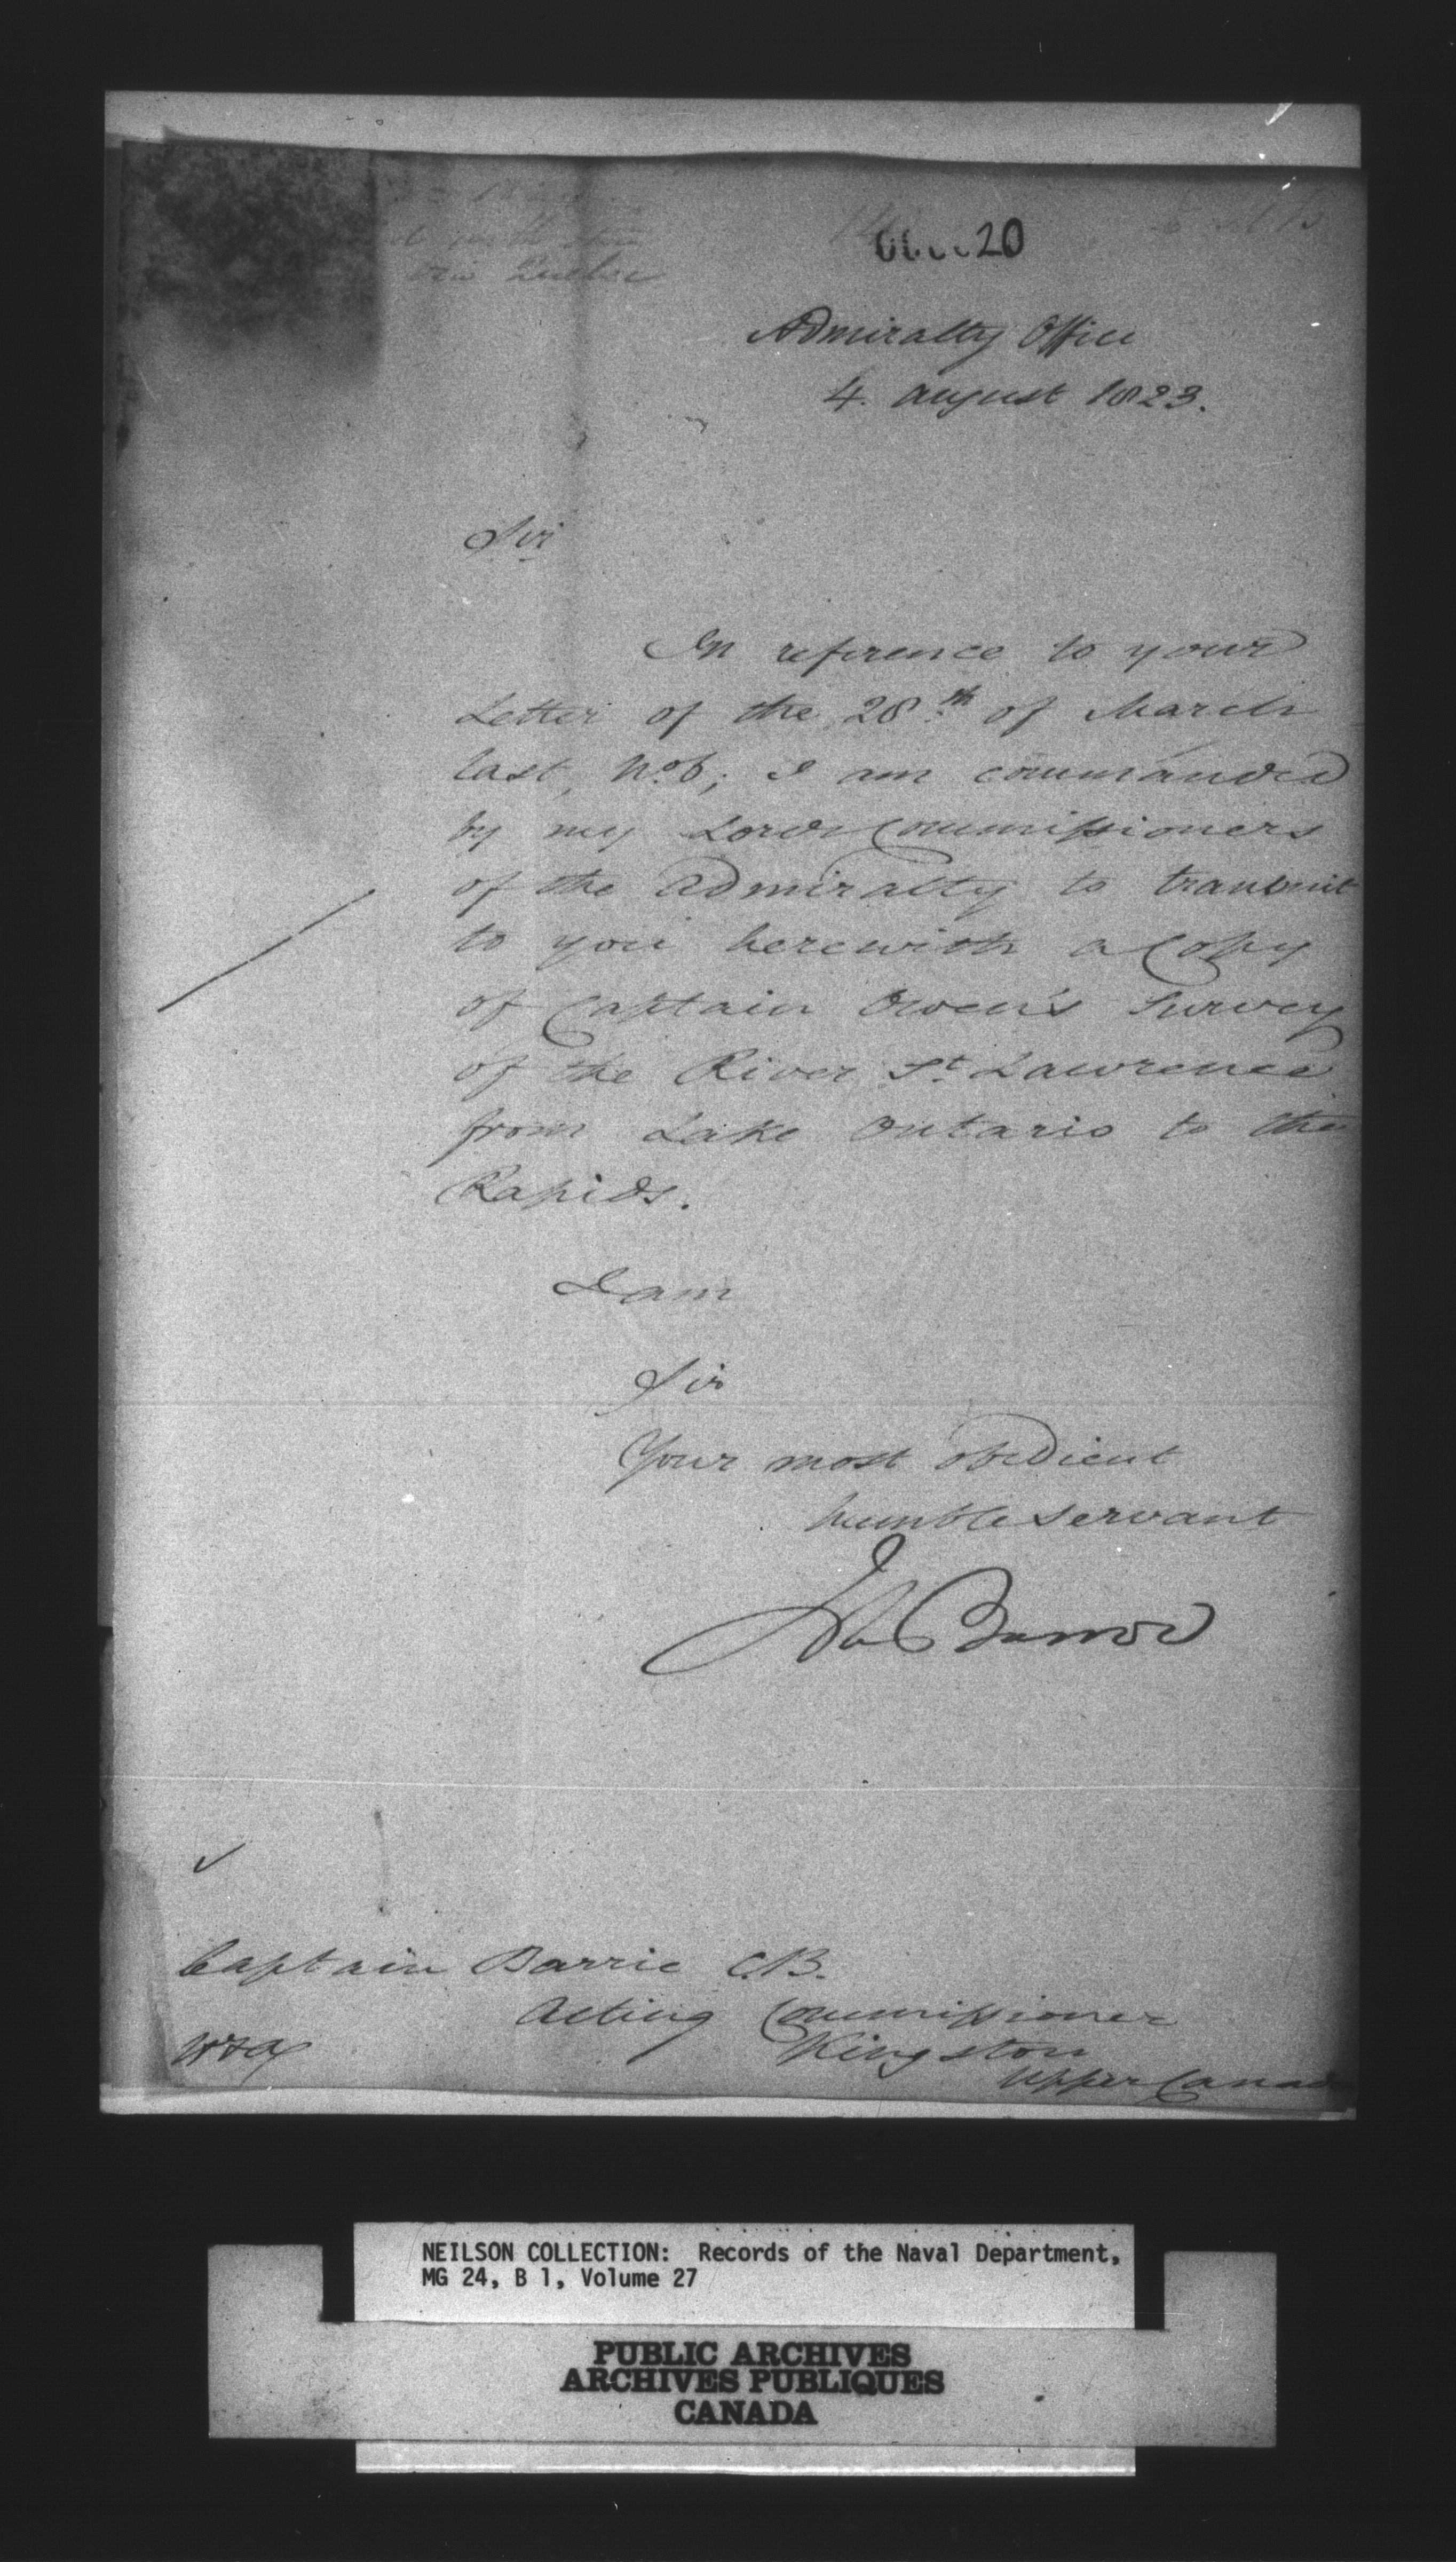 via Quebec
20
Admiralty Office
4. August 1823.
Sir
In reference to your
Letter of the 28th of March
last, No 6; I am commanded
by my Lords Commissioners
of the Admiralty to transmit
to you herewith a Copy
of Captain Owen's Survey
of the River St Lawrence
from Lake Ontario to the
Rapids.
I am
Sir
Your most obedient
humble servant
Jn Barrow
Captain Barrie C.B.
Acting Commissioner
Kingston
Upper Canada
NEILSON COLLECTION: Records of the Naval Department,
MG 24, B 1, Volume 27
PUBLIC ARCHIVES
ARCHIVES PUBLIQUES
CANADA